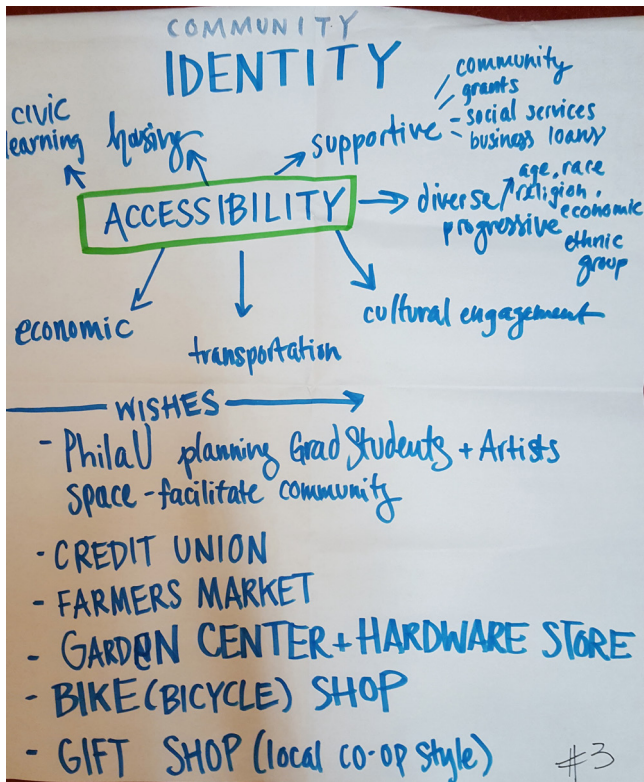 COMMUNITY
IDENTITY
civic
learning
housing
supportive
community
grants
- social services
business loans
ACCESSIBILITY
diverse
progressive
age, race
religion,
economic
ethnic
group
economic
transportation
cultural engagement
WISHES
- PhilaU planning Grad Students + Artists
space - facilitate community
- CREDIT UNION
- FARMERS MARKET
- GARDEN CENTER + HARDWARE STORE
- BIKE (BICYCLE) SHOP
- GIFT SHOP (local co-op style)
#3